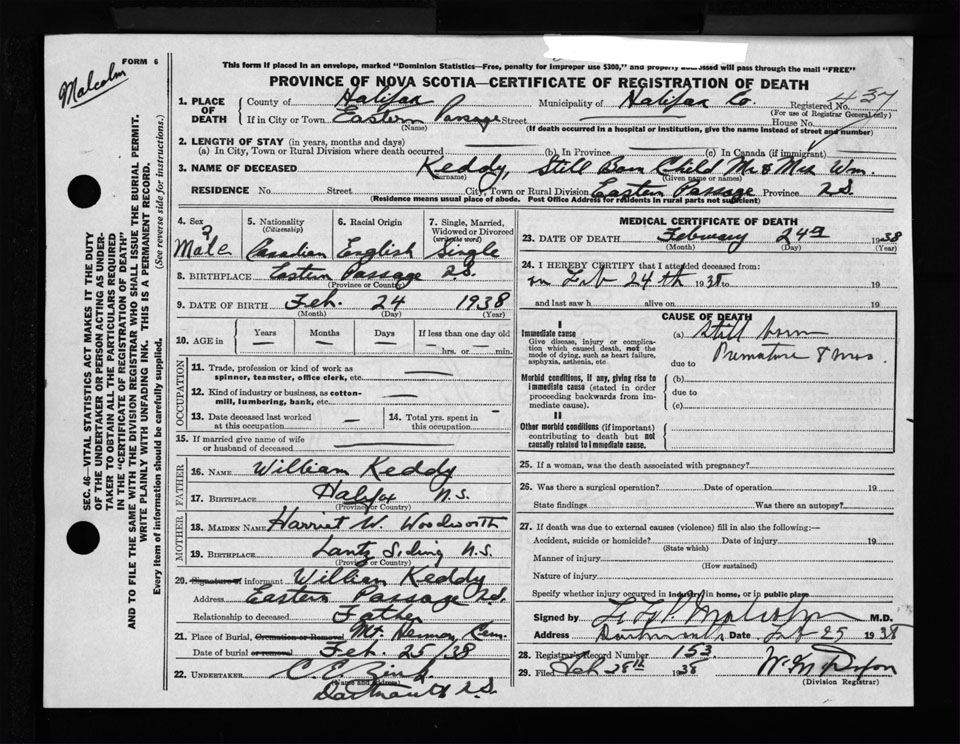 FORM 6
Malcolm
This form if placed in an envelope, marked "Dominion Statistics—Free, penalty for improper use $300," and property addressed will pass through the mail "FREE"
PROVINCE OF NOVA SCOTIA—CERTIFICATE OF REGISTRATION OF DEATH
1. PLACE OF DEATH
County of Halifax Municipality of Halifax Co. Registered No. 437
(For use of Registrar General only)
If in City or Town Eastern Passage Street House No.
(Name) (If death occurred in a hospital or institution, give the name instead of street and number)
2. LENGTH OF STAY (in years, months and days)
(a) In City, Town or Rural Division where death occurred (b) In Province (c) In Canada (if immigrant)
3. NAME OF DECEASED Keddy, Still Born Child Mr & Mrs Wm.
(Surname) (Given name or names)
RESIDENCE No. Street City, Town or Rural Division Eastern Passage Province N.S.
(Residence means usual place of abode. Post Office Address for residents in rural parts not sufficient)
4. Sex Male
5. Nationality (Citizenship) Canadian
6. Racial Origin English
7. Single, Married, Widowed or Divorced (write the word) Single
8. BIRTHPLACE Eastern Passage N.S.
(Province or Country)
9. DATE OF BIRTH Feb. 24 1938
(Month) (Day) (Year)
10. AGE in Years Months Days If less than one day old
hrs. or min.
OCCUPATION
11. Trade, profession or kind of work as spinner, teamster, office clerk, etc.
12. Kind of industry or business, as cotton-mill, lumbering, bank, etc.
13. Date deceased last worked at this occupation
14. Total yrs. spent in this occupation
15. If married give name of wife or husband of deceased
FATHER
16. NAME William Keddy
17. BIRTHPLACE Halifax N.S.
(Province or Country)
MOTHER
18. MAIDEN NAME Harriet W. Woodworth
19. BIRTHPLACE Lantz Siding N.S.
(Province or Country)
20. Signature of informant William Keddy
Address Eastern Passage N.S.
Relationship to deceased Father
21. Place of Burial, Cremation or Removal Mt. Hermon, Cem.
Date of burial or removal Feb. 25/38
22. UNDERTAKER C. E. Zink
(Name and Address)
Dartmouth N.S.
MEDICAL CERTIFICATE OF DEATH
23. DATE OF DEATH February 24th 1938
(Month) (Day) (Year)
24. I HEREBY CERTIFY that I attended deceased from:
on Feb 24th 1938 to 19
and last saw h alive on 19
CAUSE OF DEATH
I
Immediate cause
Give disease, injury or complication which caused death, not the mode of dying, such as heart failure, asphyxia, asthenia, etc.
(a) Still born
Premature 8 mos.
due to
Morbid conditions, if any, giving rise to immediate cause (stated in order proceeding backwards from immediate cause).
(b)
due to
(c)
II
Other morbid conditions (if important) contributing to death but not causally related to immediate cause.
25. If a woman, was the death associated with pregnancy?
26. Was there a surgical operation? Date of operation 19
State findings Was there an autopsy?
27. If death was due to external causes (violence) fill in also the following:—
Accident, suicide or homicide? Date of injury 19
(State which)
Manner of injury
(How sustained)
Nature of injury
Specify whether injury occurred in Industry in home, or in public place
Signed by Malcolm M.D.
Address Dartmouth Date Feb 25 1938
28. Registrar's Record Number 153
29. Filed Feb 28th 1938
(Division Registrar)
SEC. 46—VITAL STATISTICS ACT MAKES IT THE DUTY
OF THE UNDERTAKER OR PERSON ACTING AS UNDER-
TAKER TO OBTAIN ALL THE PARTICULARS REQUIRED
IN THE "CERTIFICATE OF REGISTRATION OF DEATH"
AND TO FILE THE SAME WITH THE DIVISION REGISTRAR WHO SHALL ISSUE THE BURIAL PERMIT.
WRITE PLAINLY WITH UNFADING INK. THIS IS A PERMANENT RECORD.
Every item of information should be carefully supplied. (See reverse side for instructions.)